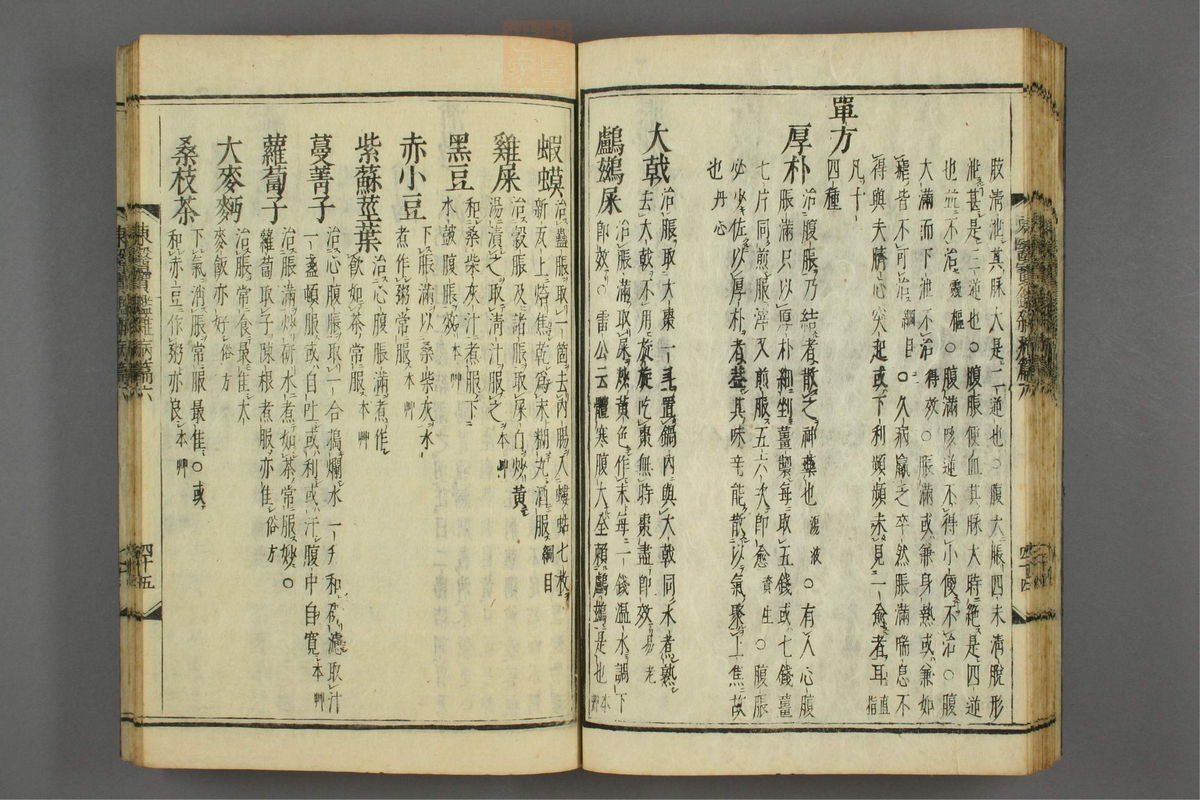 肢清泄其脉大是二逆也○腹大脹四末清脫形
泄甚是三逆也○腹脹便血其脉大時絶是四逆
也並不治靈樞○腹滿咳逆不得小便不治○腹
大滿而下泄不治得效○脹滿或兼身熱或兼如
瘧皆不可治綱目○久病羸乏卒然脹滿喘息不
得與夫臍心突起或下利頻頻未見一愈者耳直指
單方
凡十四種
厚朴
治腹脹乃結者散之神藥也湯液○有人心腹
脹滿只以厚朴細剉薑製每取五錢或七錢薑
七片同煎服滓又煎服五六次卽愈資生○腹脹
必少佐以厚朴者蓋其味辛能散以氣聚上焦故
也丹心
大戟
治脹取大棗一斗置鍋內與大戟同水煮熟
去大戟不用旋旋吃棗無時棗盡卽效易老
鸕鷀屎
治脹滿取屎炒黃色作末每一錢溫水調下
卽效○雷公云體寒腹大全賴鸕鷀是也本草
蝦蟆
治蠱脹取一箇去內腸入螻蛄七枚
新瓦上焙焦乾爲末糊丸酒服綱目
雞屎
治穀脹及諸脹取屎白炒黃
湯漬之取淸汁服之本艸
黑豆
和桑柴灰汁煮服下
水鼓腹脹效本艸
赤小豆
下脹滿以桑柴灰水
煮作粥常服本艸
紫蘇莖葉
治心腹脹滿煮作
飮如茶常服本艸
蔓菁子
治心腹脹取一合搗爛水一升和硏濾取汁
一盞頓服或自吐或利或汗腹中自寬本艸
蘿蔔子
治脹滿炒硏水煮如茶常服妙○
蘿蔔取子陳根煮服亦佳俗方
大麥麪
治脹常食最佳大
麥飯亦好俗方
桑枝茶
下氣消脹常服最佳○或
和赤豆作粥亦良本艸
東醫寶鑑雜病篇六
四十五